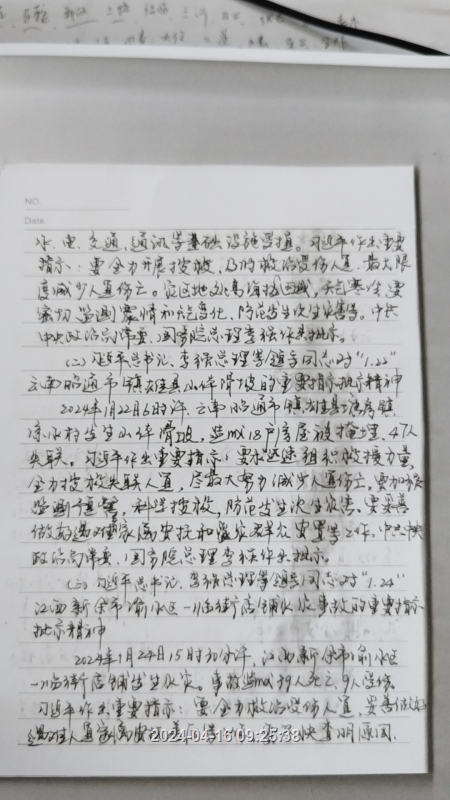 NO.
Date.
水、电、交通、通讯等基础设施受损。习近平作出重要
指示：要全力开展搜救，及时救治受伤人员，最大限
度减少人员伤亡。灾区地处高海拔区域，天气寒冷，要
密切监测震情和天气变化，防范发生次生灾害等。中共
中央政治局常委、国务院总理李强作出批示。
(二)习近平总书记、李强总理等领导同志对"1.22"
云南昭通市镇雄县山体滑坡的重要指示批示精神
2024年1月22日6时许，云南昭通市镇雄县塘房镇
凉水村发生山体滑坡，造成18户房屋被掩埋，47人
失联。习近平作出重要指示：要求迅速组织救援力量，
全力搜救失联人员，尽最大努力减少人员伤亡，要加强
监测预警，科学搜救，防范发生次生灾害。要妥善
做好遇难家属安抚和受灾群众安置等工作。中共中央
政治局常委、国务院总理李强作出批示。
(三)习近平总书记、李强总理等领导同志对"1.24"
江西新余市渝水区一临街店铺火灾事故的重要指示
批示精神
2024年1月24日15时许，江西新余市渝水区
一临街店铺发生火灾。事故造成39人死亡，9人受伤。
习近平作出重要指示：要全力救治受伤人员，妥善做好
遇难人员家属安抚等，尽快查明原因，
2024-04-16 09:25:38